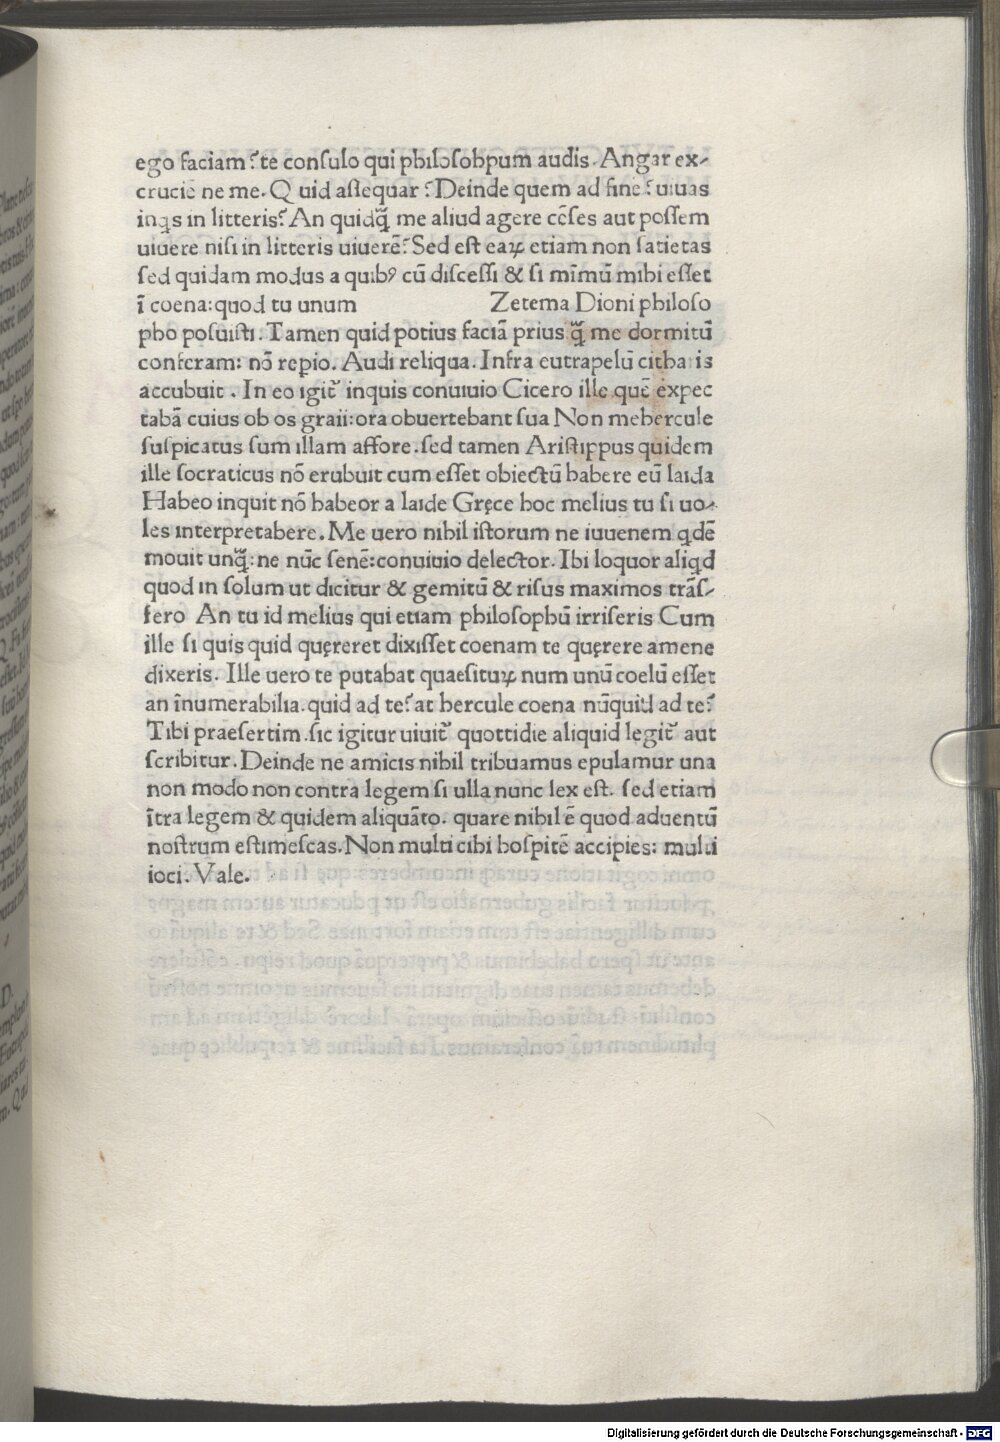 ego faciam? te consulo qui philosohpum audis. Angar ex-
crucie ne me. Quid assequar? Deinde quem ad finē? uiuas
inqs in litteris? An quidq̄ me aliud agere cēses aut possem
uiuere nisi in litteris uiuerē? Sed est eaꝝ etiam non satietas
sed quidam modus a quibꝰ cū discessi & si mīmū mihi esset
ī coena: quod tu unum Zetema Dioni philoso
pho posuisti. Tamen quid potius faciā prius q̄ me dormitū
conferam: nō repio. Audi reliqua. Infra eutrapelū citharis
accubuit. In eo igit̄ inquis conuiuio Cicero ille quē expec
tabā cuius ob os graii: ora obuertebant sua Non mehercule
suspicatus sum illam affore. sed tamen Aristippus quidem
ille socraticus nō erubuit cum esset obiectū habere eū laida
Habeo inquit nō habeor a laide Gręce hoc melius tu si uo-
les interpretabere. Me uero nihil istorum ne iuuenem qdē
mouit unq̄: ne nūc senē: conuiuio delector. Ibi loquor aliqd
quod in solum ut dicitur & gemitū & risus maximos trās-
fero An tu id melius qui etiam philosophū irriseris Cum
ille si quis quid quęreret dixisset coenam te quęrere amene
dixeris. Ille uero te putabat quaesituꝝ num unū coelū esset
an īnumerabilia. quid ad te? at hercule coena nūquid ad te?
Tibi praesertim. sic igitur uiuit̄ quottidie aliquid legit̄ aut
scribitur. Deinde ne amicis nihil tribuamus epulamur una
non modo non contra legem si ulla nunc lex est. sed etiam
ītra legem & quidem aliquāto. quare nihil ē quod aduentū
nostrum estimescas. Non multi cibi hospitē accipies: multi
ioci. Vale.
Digitalisierung gefördert durch die Deutsche Forschungsgemeinschaft - DFG